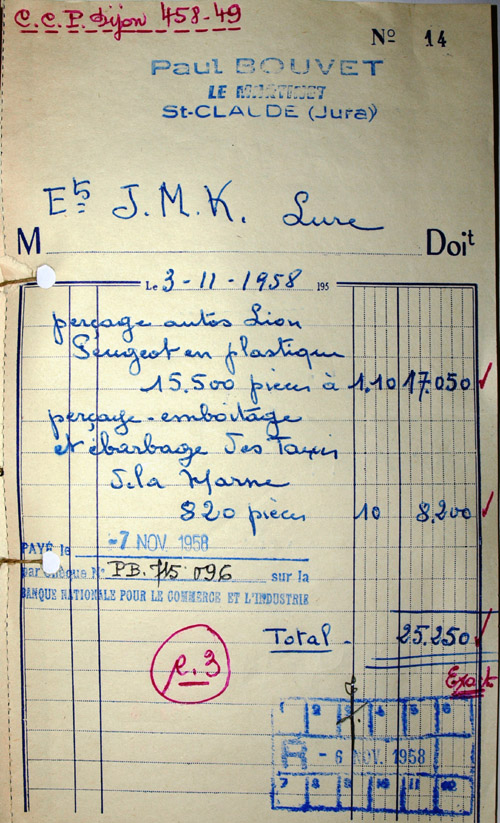 C.C.P. Dijon 458-49
Nº 14
Paul BOUVET
LE MARTINET
St-CLAUDE (Jura)
Ets J.M.K. Lure
M Doit
Le 3-11-1958 195
perçage autos Lion
Peugeot en plastique
15.500 pièces à 1,10 17.050
perçage-emboitage
et ébarbage des Taxis
de la Marne
820 pièces 10 8.200
PAYÉ le -7 NOV. 1958
par chèque Nº PB.715 096 sur la
BANQUE NATIONALE POUR LE COMMERCE ET L'INDUSTRIE
Total - 25.250
Exact
R.3
1 2 3 4 5 6
R - 6 NOV. 1958
7 8 9 10 11 12